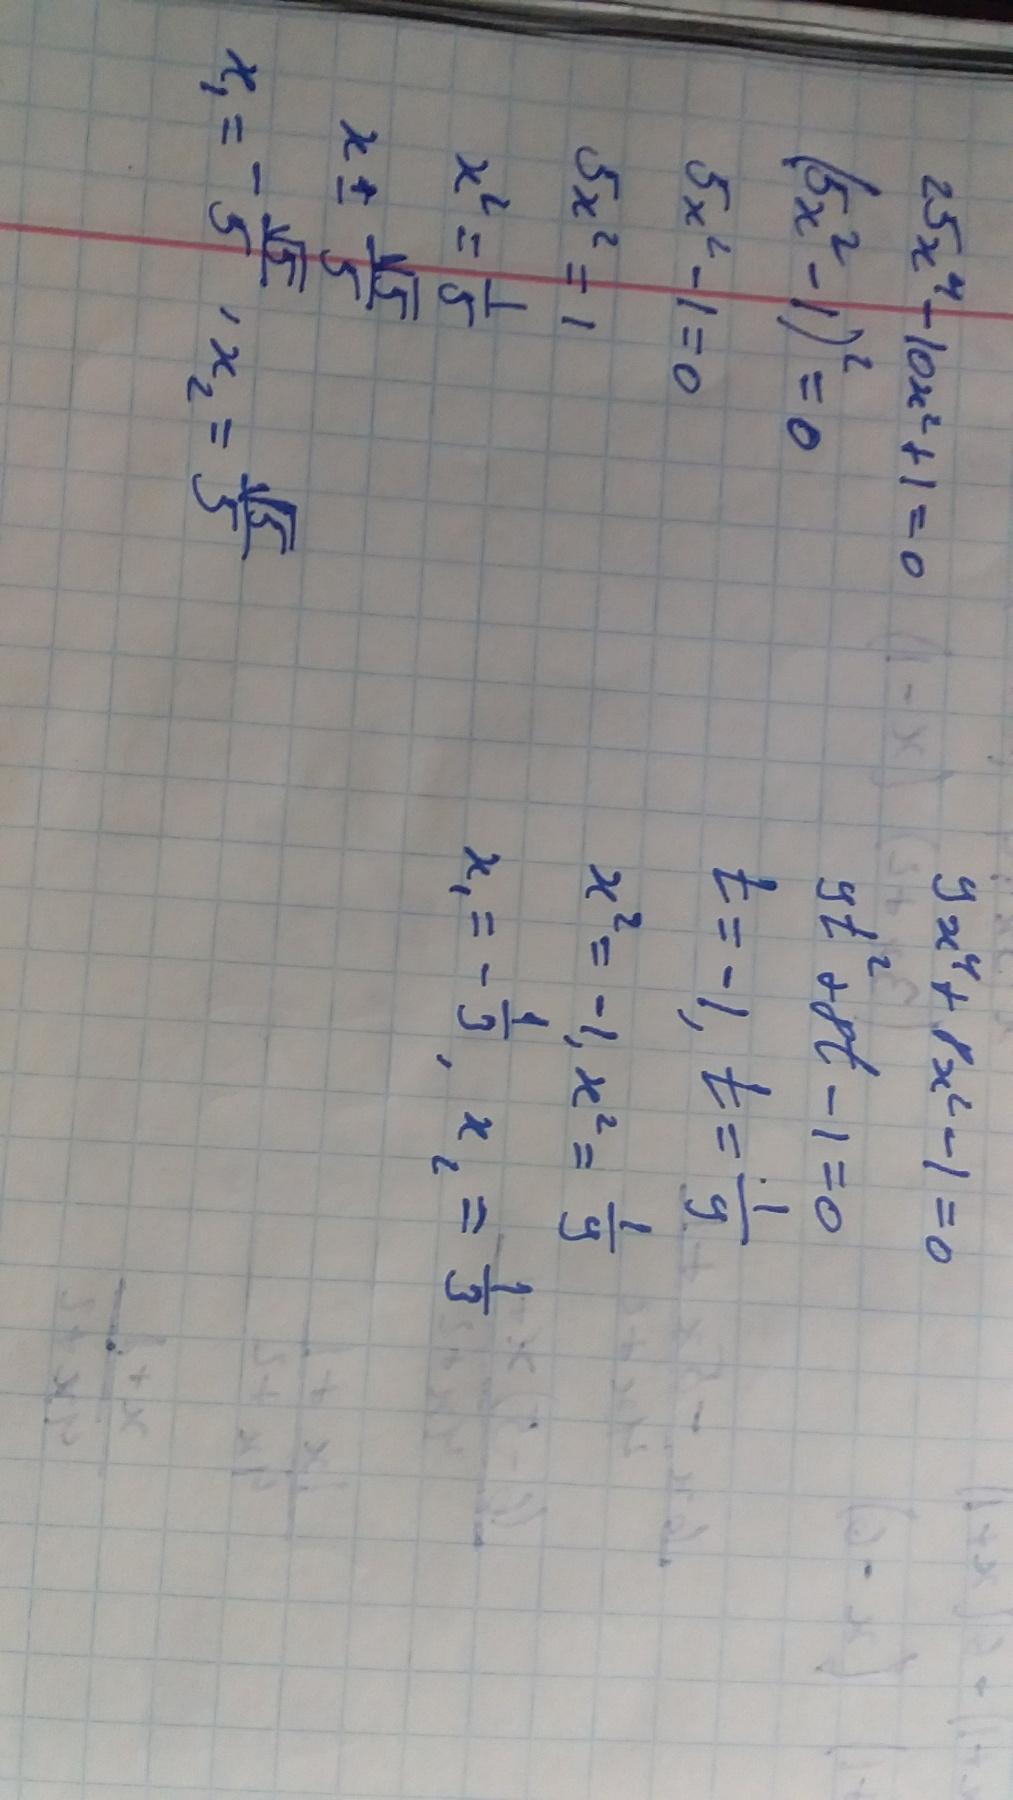 25x⁴-10x²+1=0
(5x²-1)²=0
5x²-1=0
5x²=1
x²=1/5
x±√5/5
x₁=-√5/5, x₂=√5/5
9x⁴+8x²-1=0
9t²+8t-1=0
t=-1, t=1/9
x²=-1, x²=1/9
x₁=-1/3, x₂=1/3